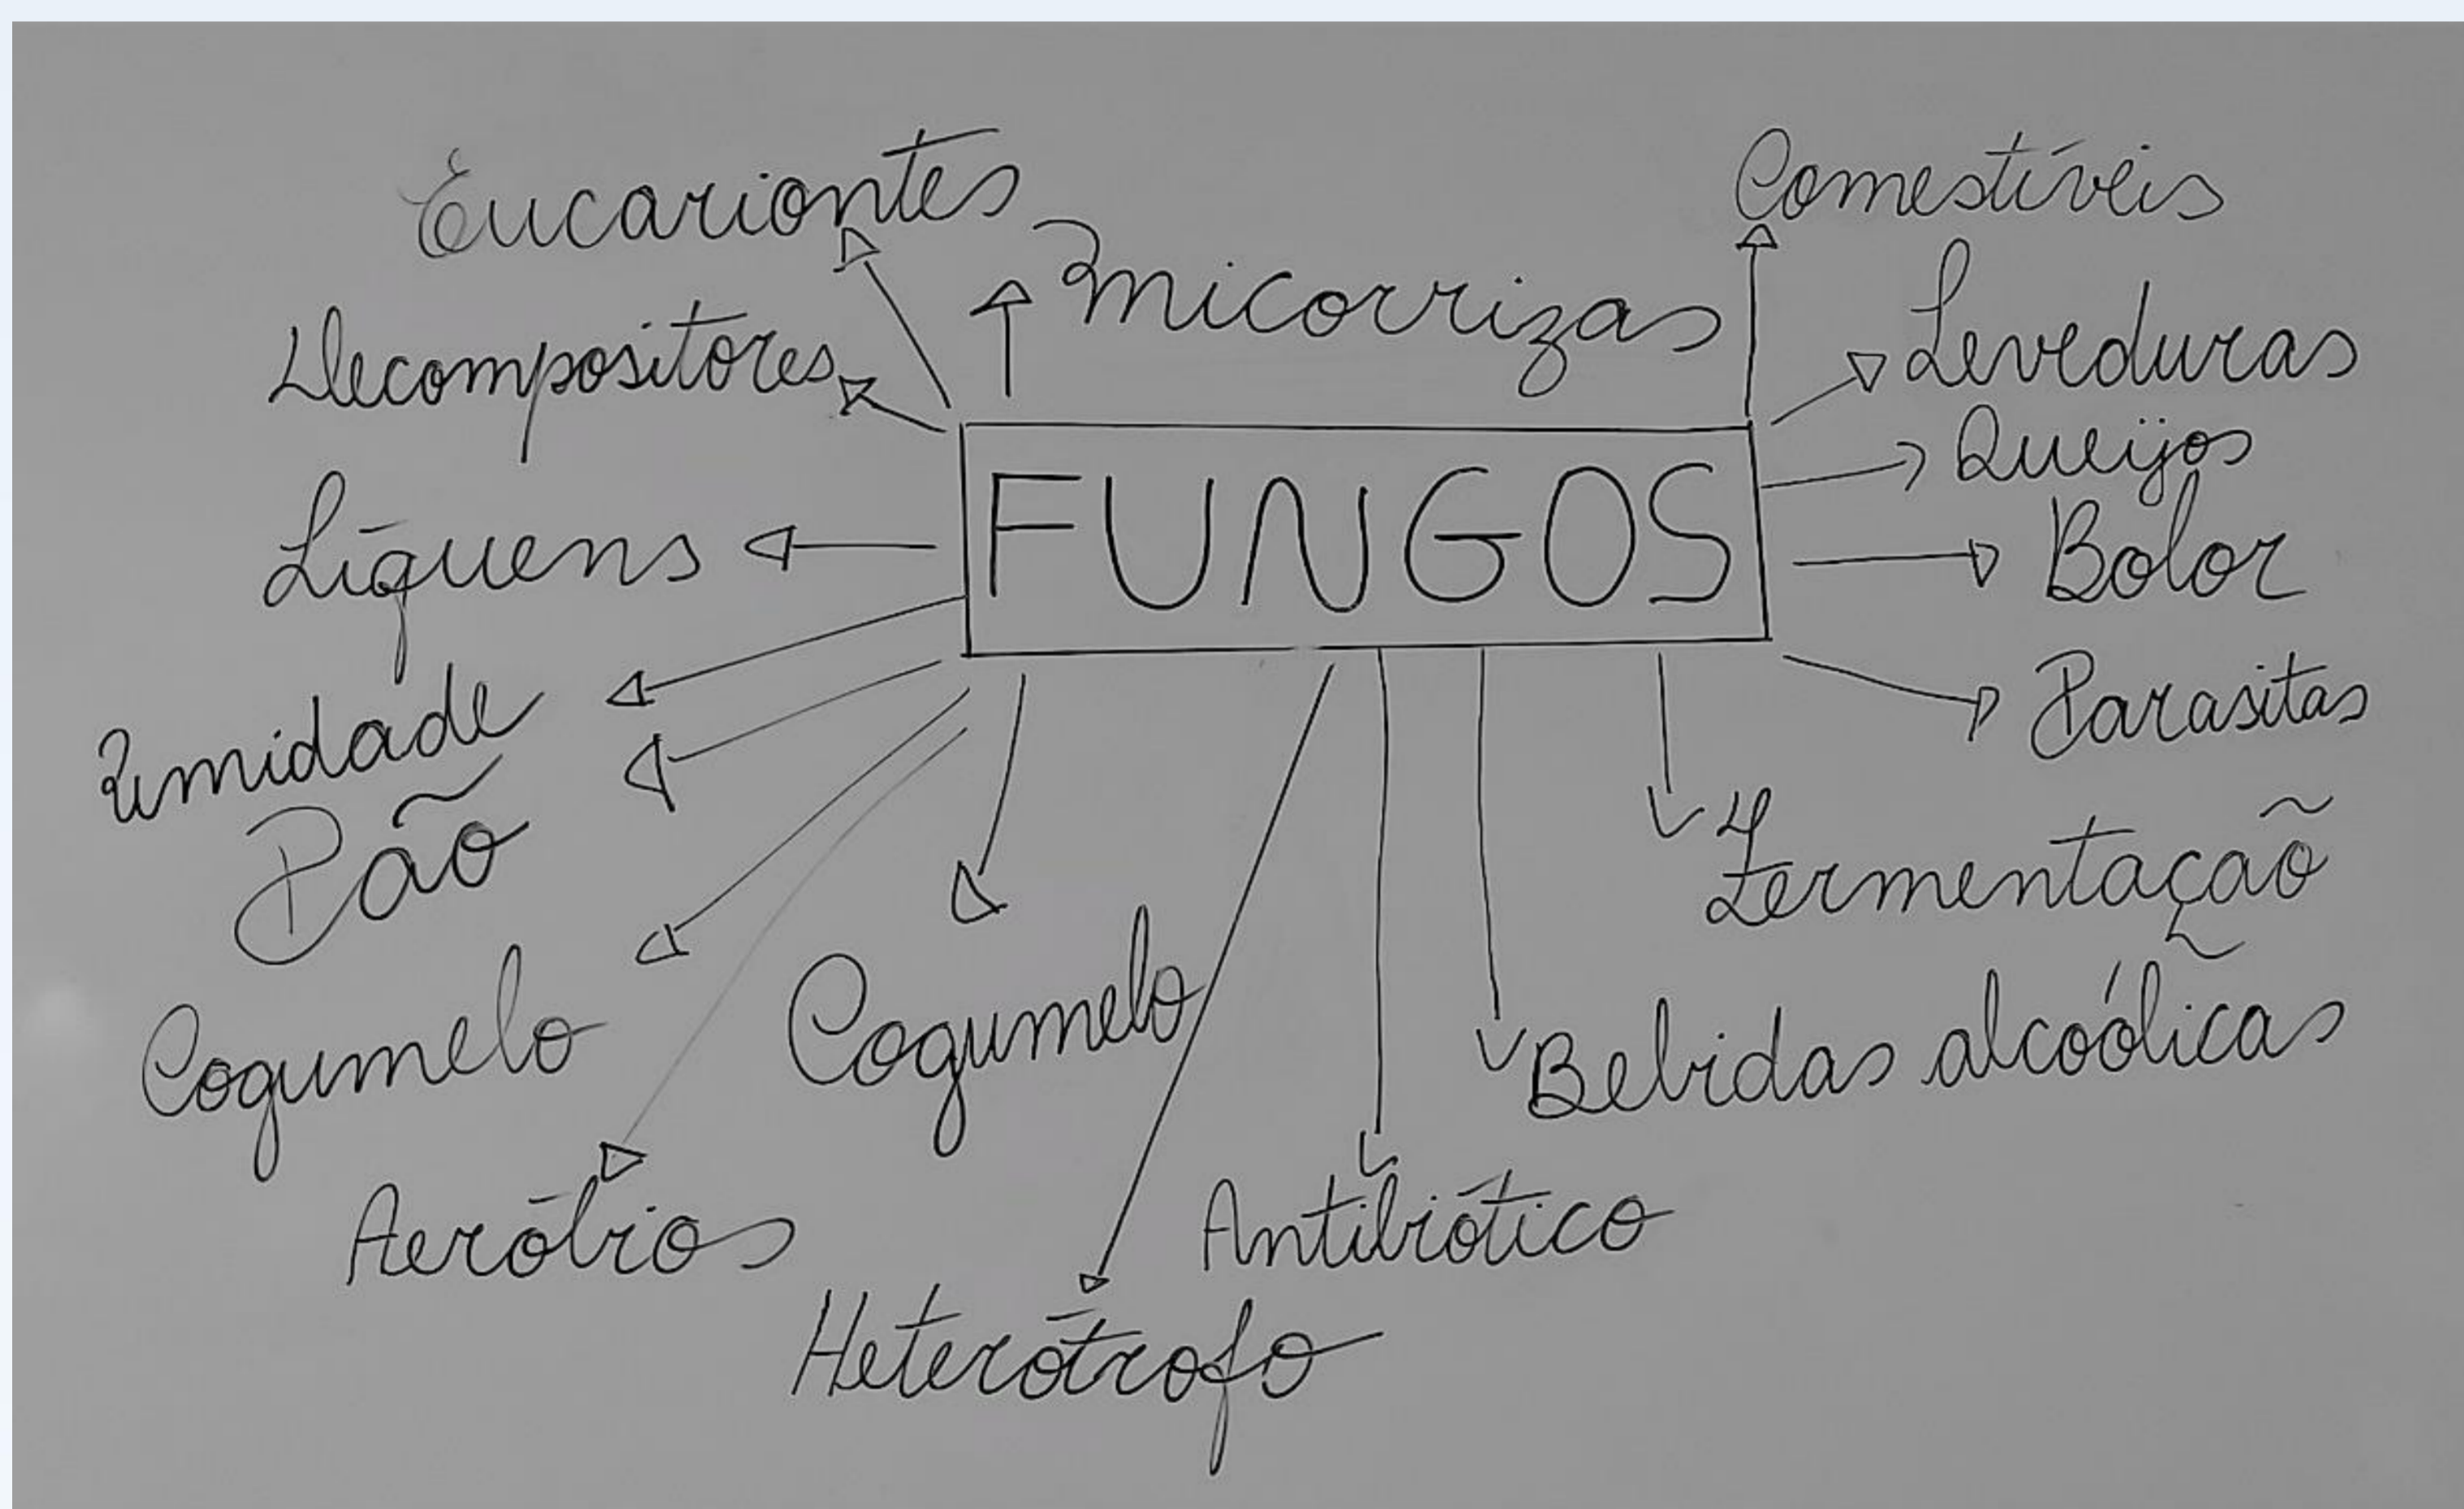 Eucariontes
Comestíveis
Micorrizas
Decompositores
Leveduras
Queijos
FUNGOS
Líquens
Bolor
Umidade
Parasitas
Pão
Fermentação
Cogumelo
Cogumelo
Bebidas alcoólicas
Aeróbios
Antibiótico
Heterótrofo